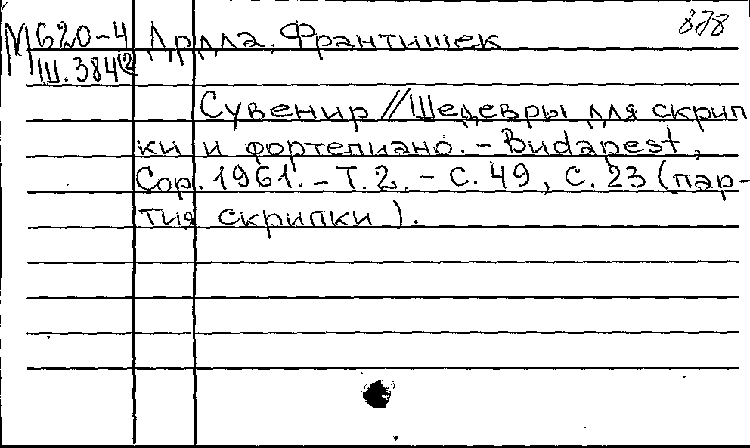 878
М620-4 Дрдла, Франтишек
Ш.384(2
Сувенир // Шедевры для скрип
ки и фортепиано. - Budapest,
Cop. 1961. - Т.2. - С. 49, С. 23 (пар-
тия скрипки).